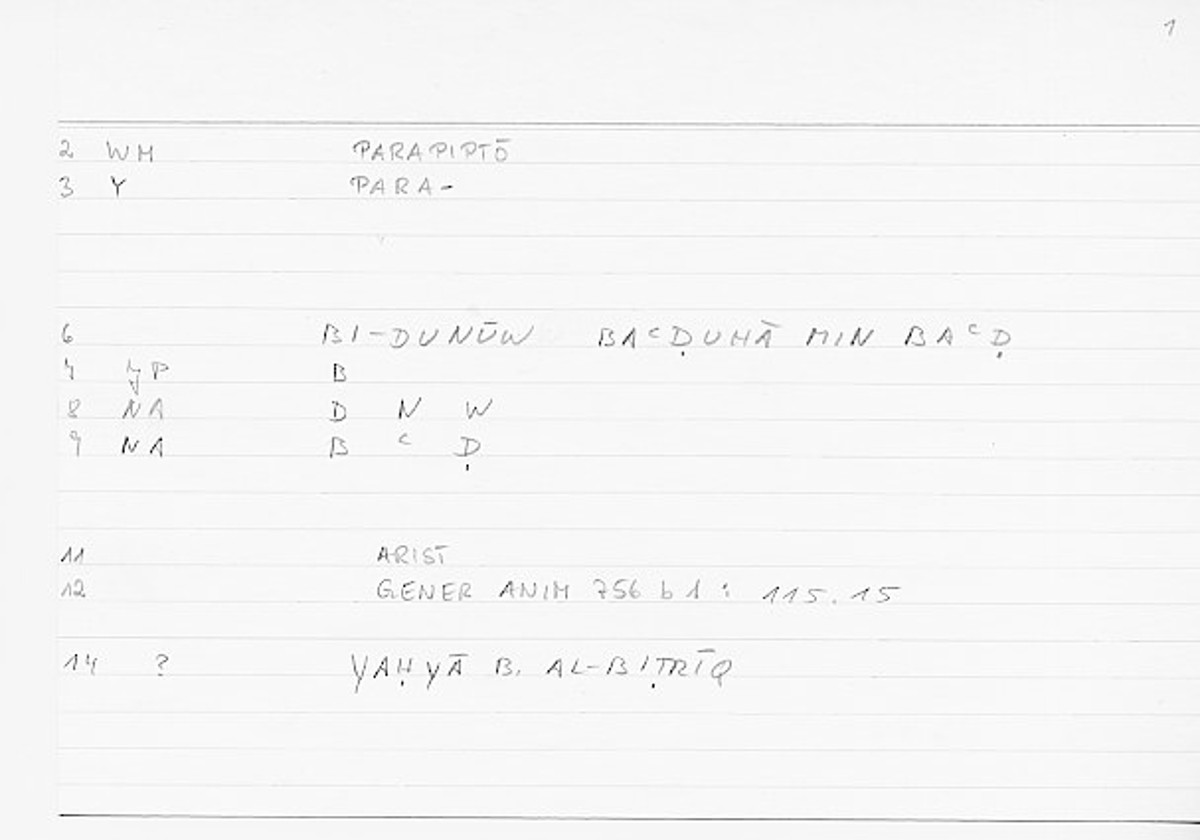 1
2 WM PARAPIPTŌ
3 Y PARA-
6 BI-DUNŪW BAᶜḌUHĀ MIN BAᶜḌ
7 ǦP B
8 NA D N W
9 NA B ᶜ Ḍ
11 ARIST
12 GENER ANIM 756 b 1 : 115.15
14 ? YAḤYĀ B. AL-BIṬRĪQ